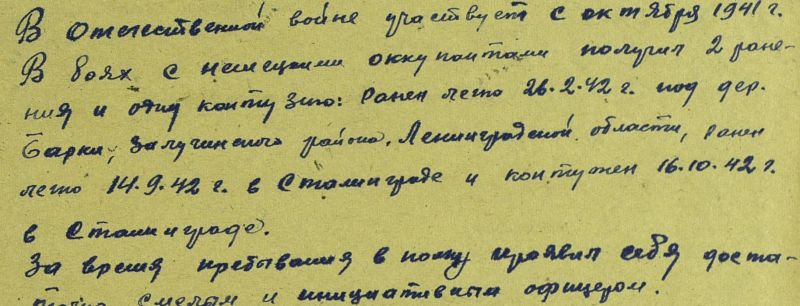 В Отечественной войне участвует с октября 1941 г.
В боях с немецкими оккупантами получил 2 ране-
ния и одну контузию: Ранен легко 26.2.42 г. под дер.
Барки, Залучинского района, Ленинградской области, ранен
легко 14.9.42 г. в Сталинграде и контужен 16.10.42 г.
в Сталинграде.
За время пребывания в полку проявил себя доста-
точно смелым и инициативным офицером.